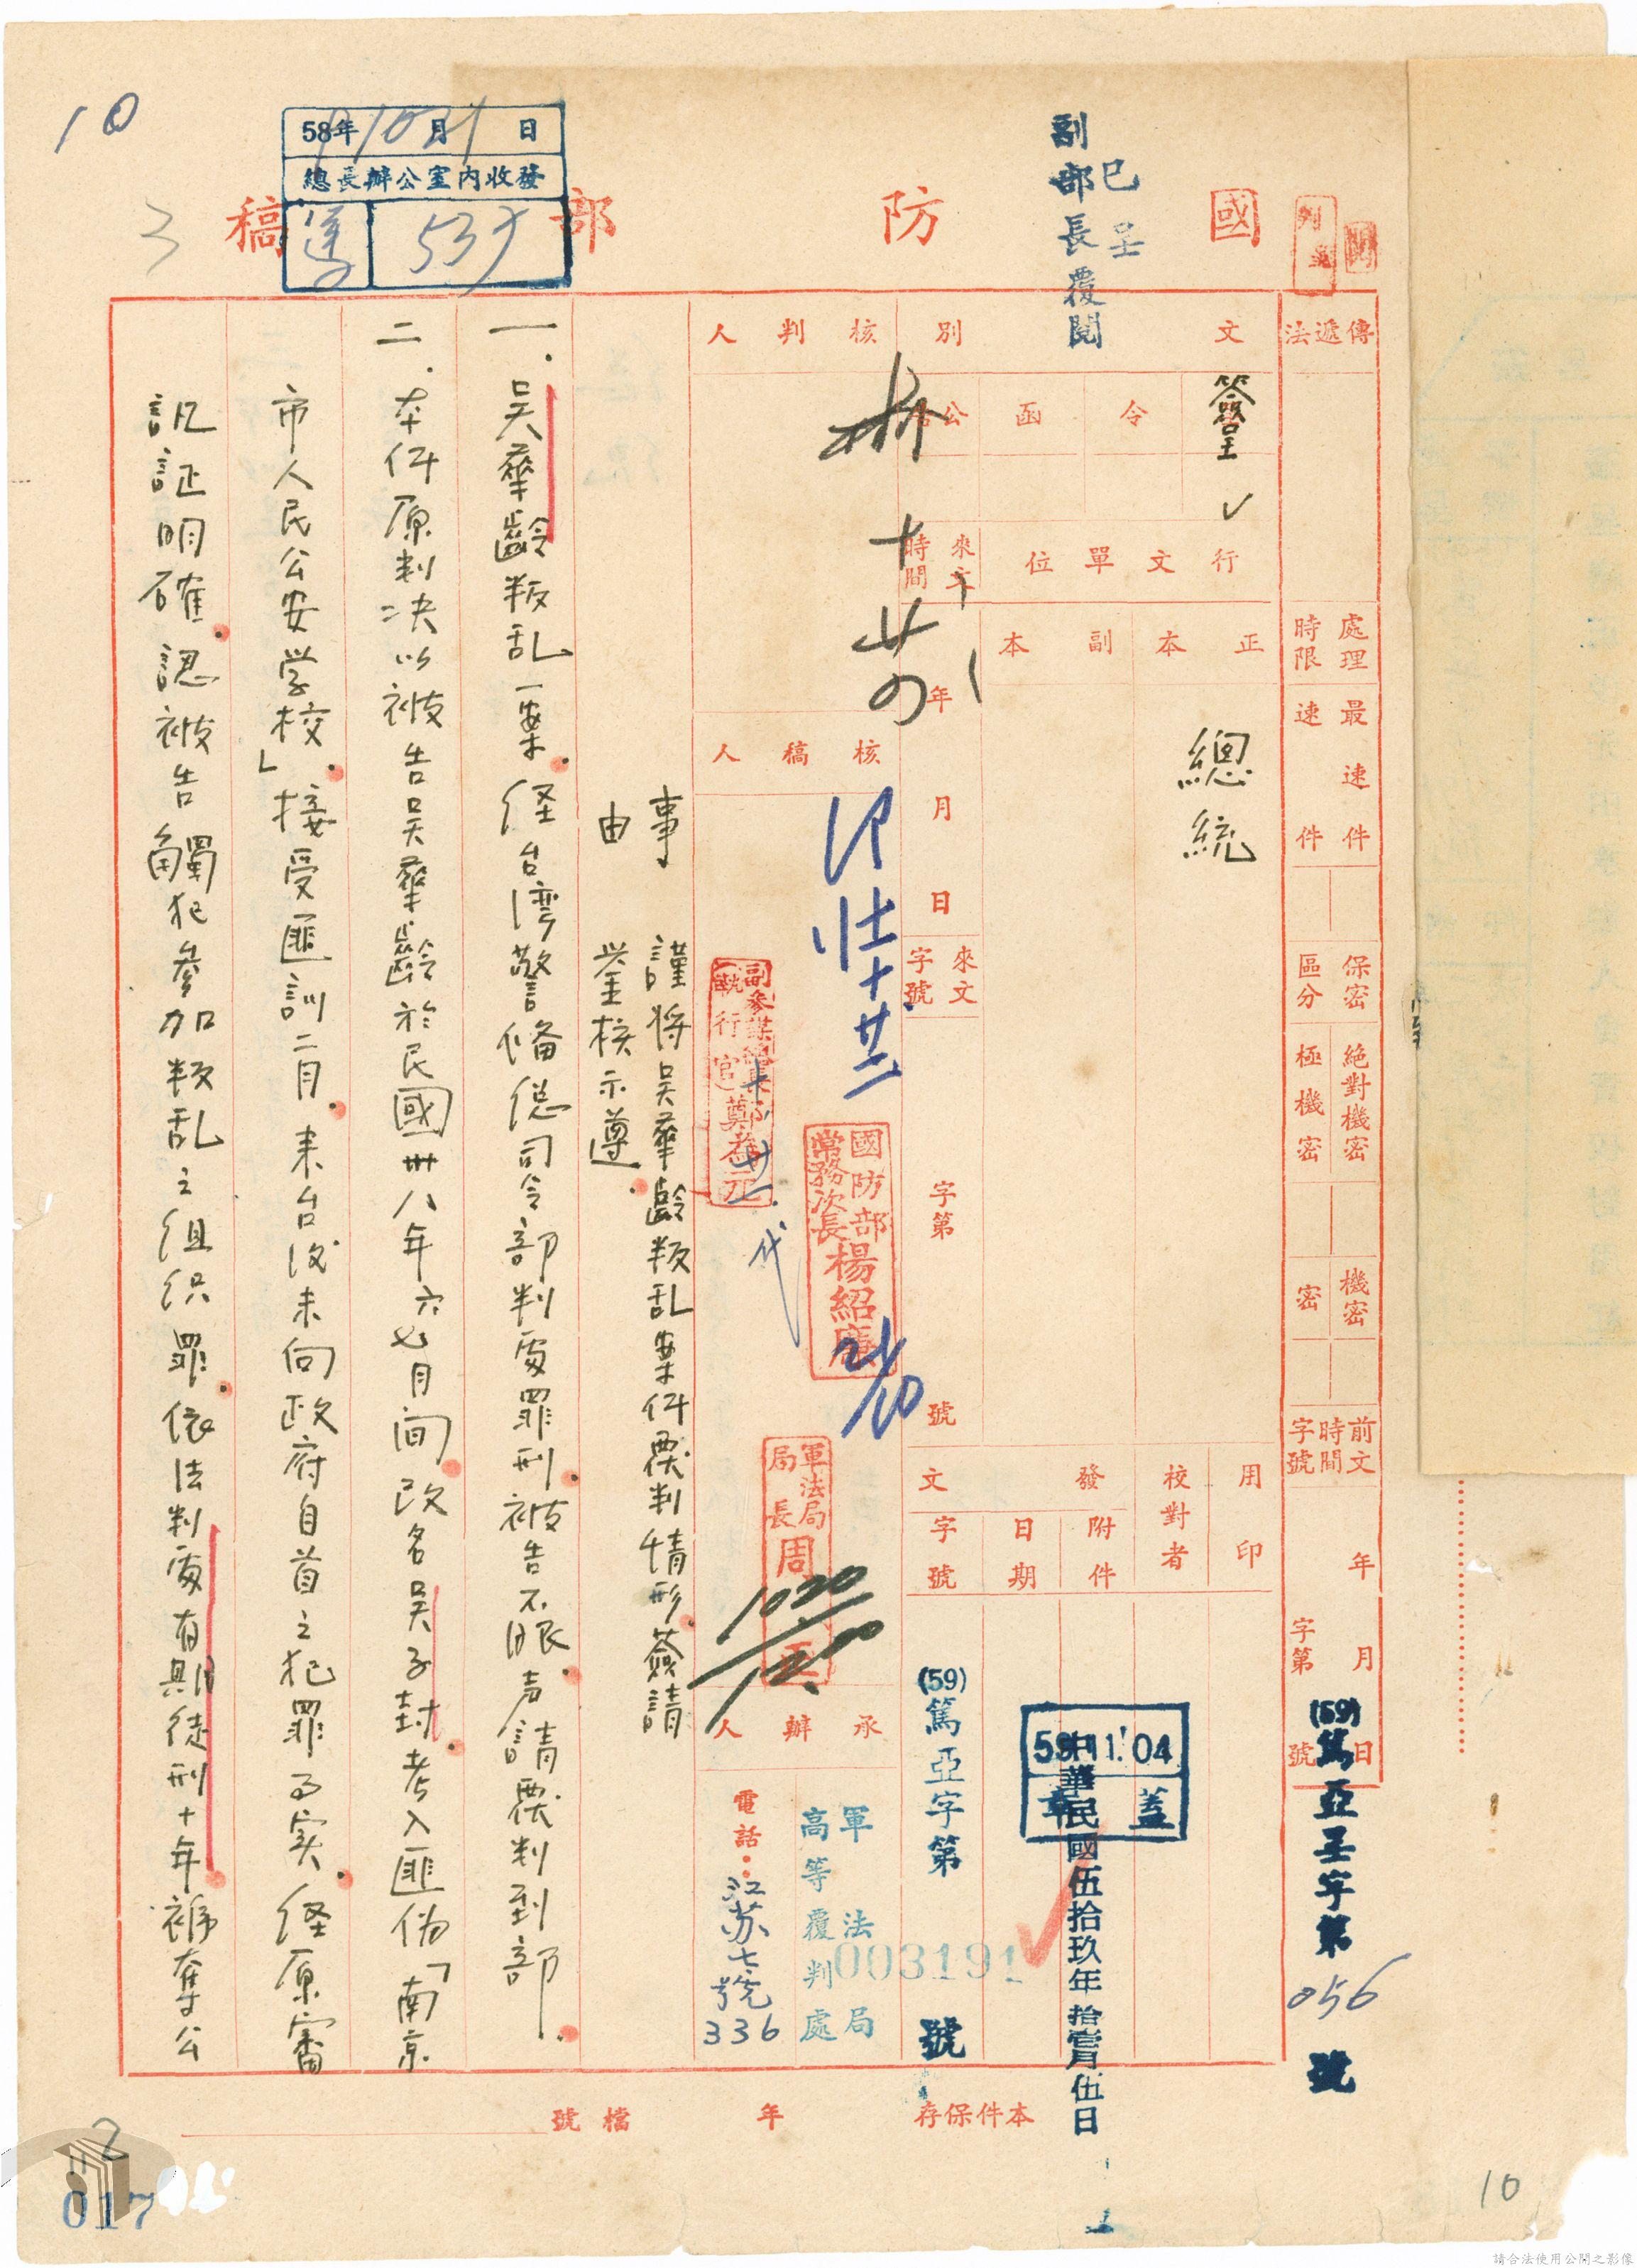 10
58年 月 日
總長辦公室內收發
國防部稿
副部長覆閱
已呈
傳遞法
處理時限
最速件
速件
保密區分
絕對機密
極機密
機密
密
前文時間字號
年 月 日
字第 號
(59)篤亞呈字第056號
文別
簽呈
令
函
公
行文單位
正本
副本
總統
來文時間
年 月 日
來文字號
字第 號
用印
校對者
發文
附件
日期
字號
59.11.04
蓋章
中華民國伍拾玖年拾壹月伍日
(59)篤亞字第003191號
核判人
核稿人
國防部常務次長楊紹廉
副參謀總長執行官鄭為元
代
軍法局局長周
1020
承辦人
軍法局
高等覆判處
電話：江苏七號336
事由
謹將吴華齡叛乱案件覆判情形簽請
鉴核示遵
一．吴華齡叛乱一案経台湾警俻総司令部判處罪刑被告不服声請覆判到部
二．本件原判决以被告吴華齡於民國卅八年六七月间改名吴子封考入匪伪「南京
市人民公安学校」接受匪訓二月来台後未向政府自首之犯罪事实経原審
訊証明確認被告觸犯參加叛乱之组织罪依法判處有期徒刑十年褫奪公
本件保存 年
檔號
2
017
10
請合法使用公開之影像